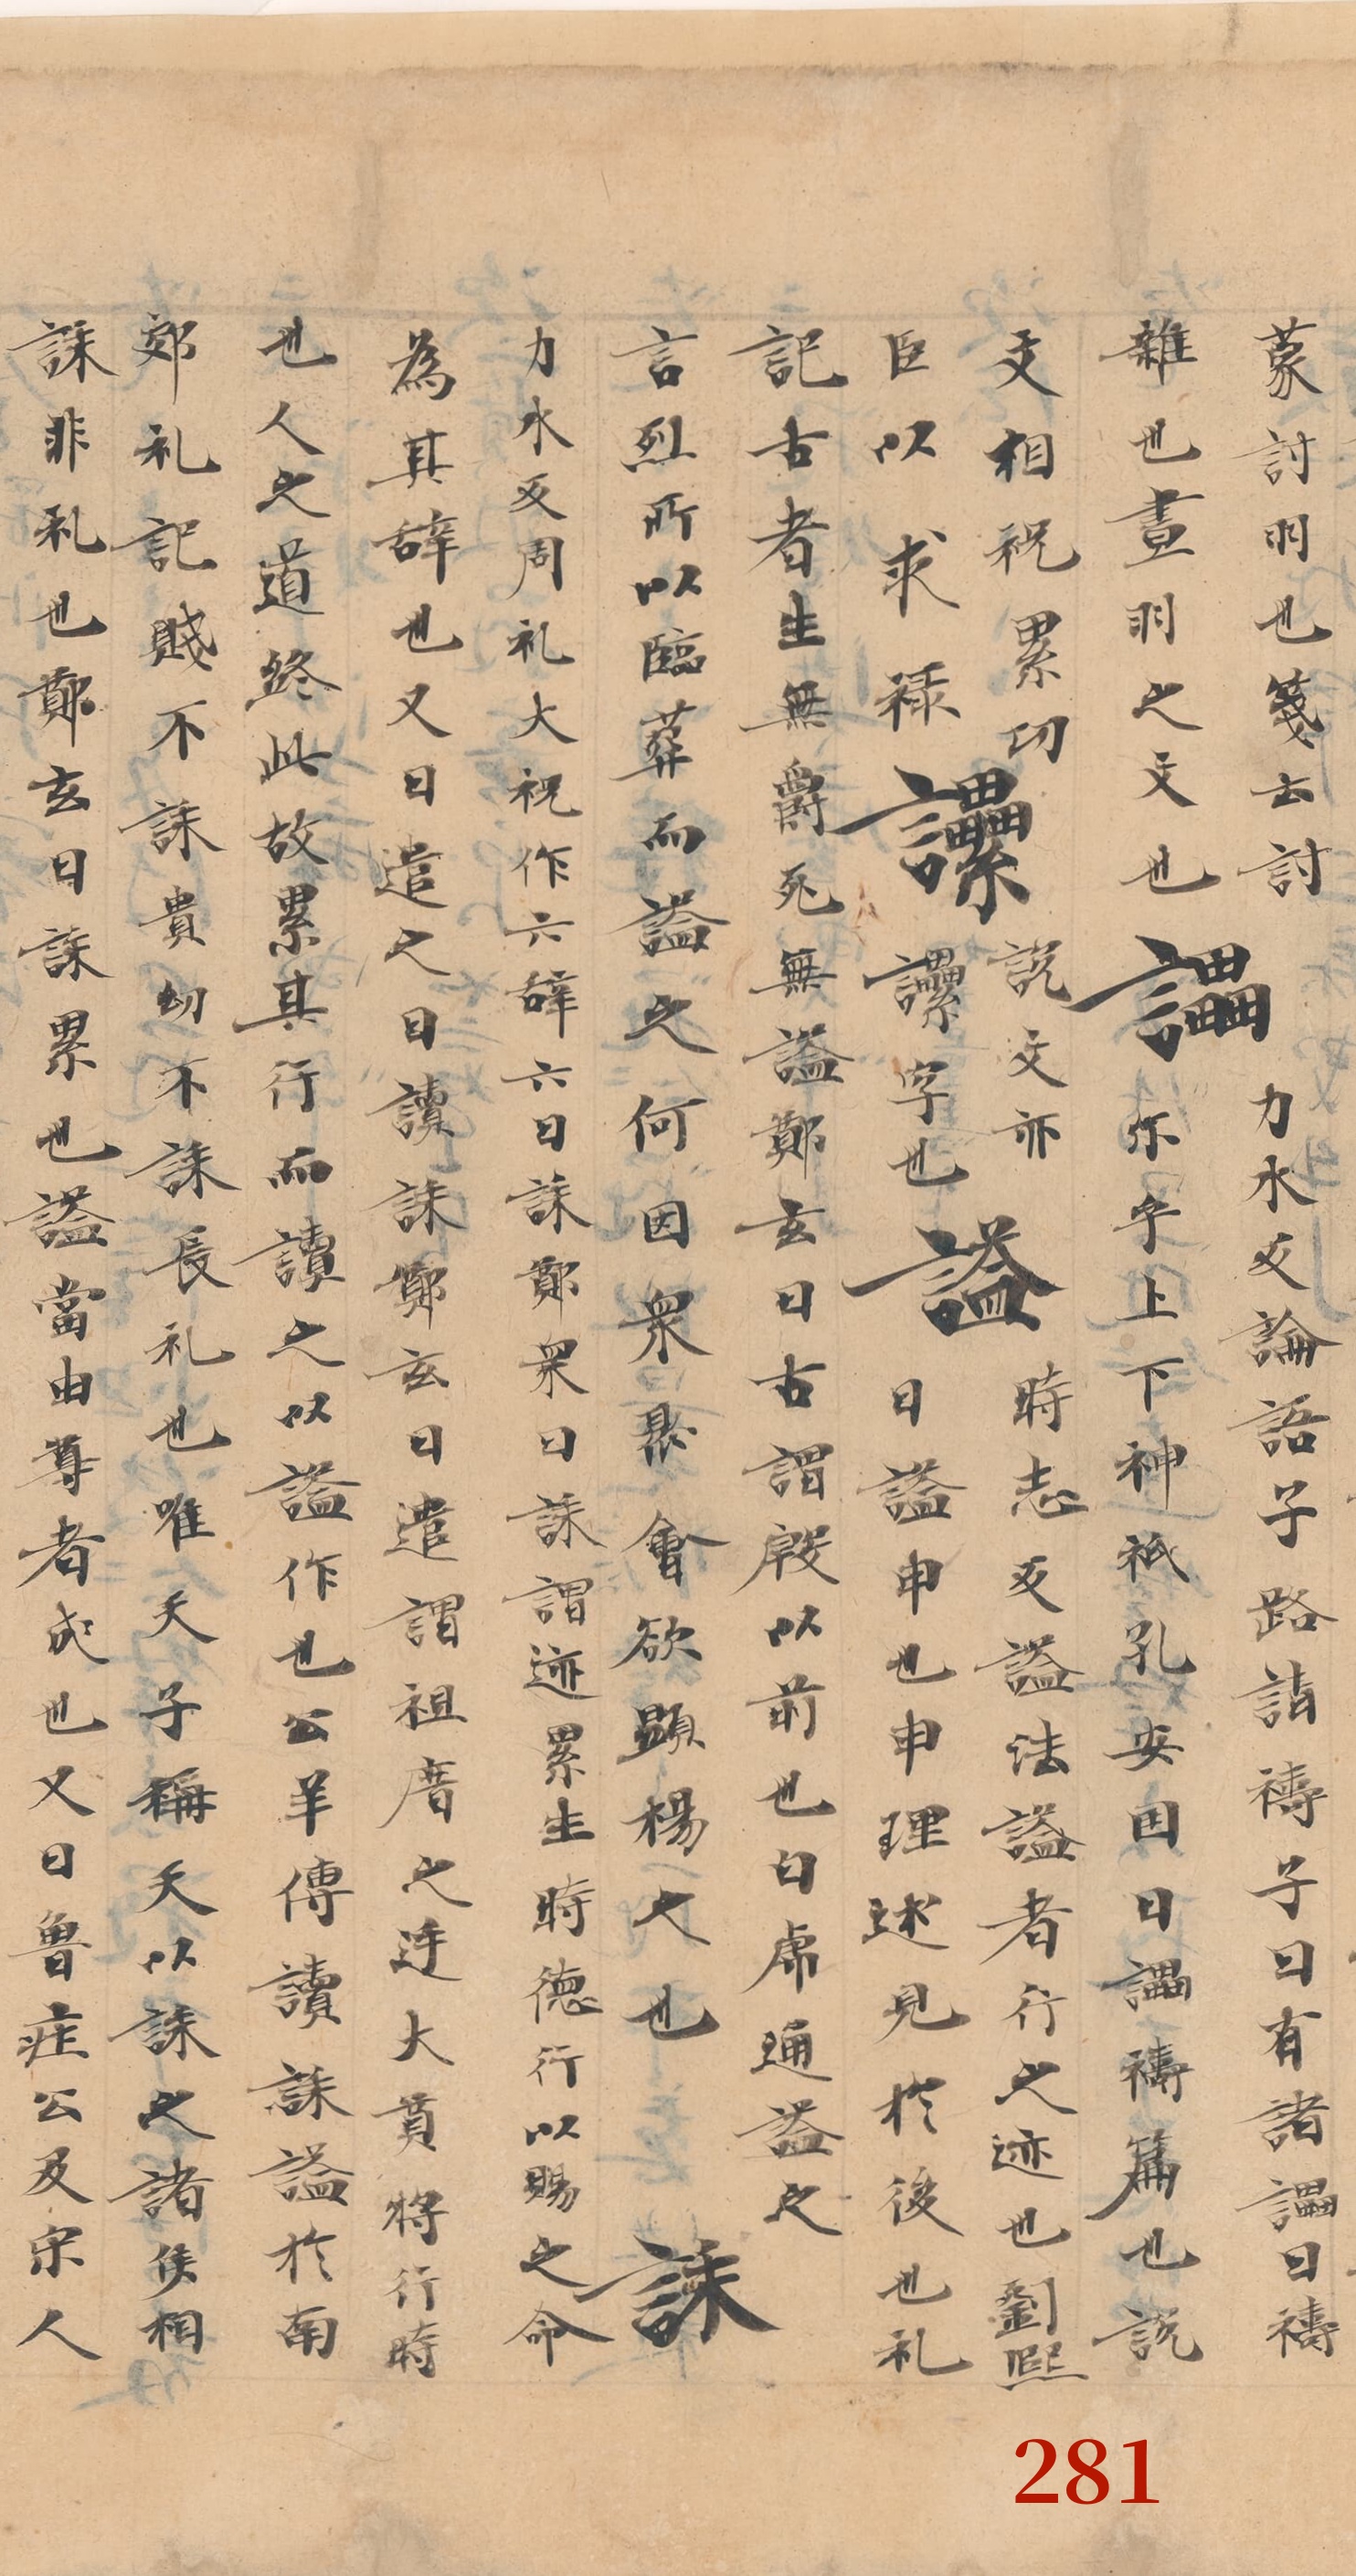 蒙討羽也箋云討
雜也畫羽之文也讄力水反論語子路請禱子曰有諸讄曰禱
尓乎上下神祇孔安囯曰讄禱篇也說
文相祝累功讕說文亦
臣以求禄讕字也謚時志反謚法謚者行之迹也劉熈
曰謚申也申理述見於後也礼
記古者生無爵死無謚鄭玄曰古謂殷以前也白虎通謚之
言烈所以臨葬而謚之何因衆聚會欲顯楊之也誄
力水反周礼大祝作六辞六曰誄鄭衆曰誄謂迹累生時德行以賜之命
為其辞也又曰遣之日讀誄鄭玄曰遣謂祖廟之迋大賁將行時
也人之道終此故累其行而讀之以謚作也公羊傳讀誄謚於南
郊礼記賤不誄貴㓜不誄長礼也唯天子稱天以誄之諸侯相
誄非礼也鄭玄曰誄累也謚當由尊者成也又曰魯庄公及宋人
281